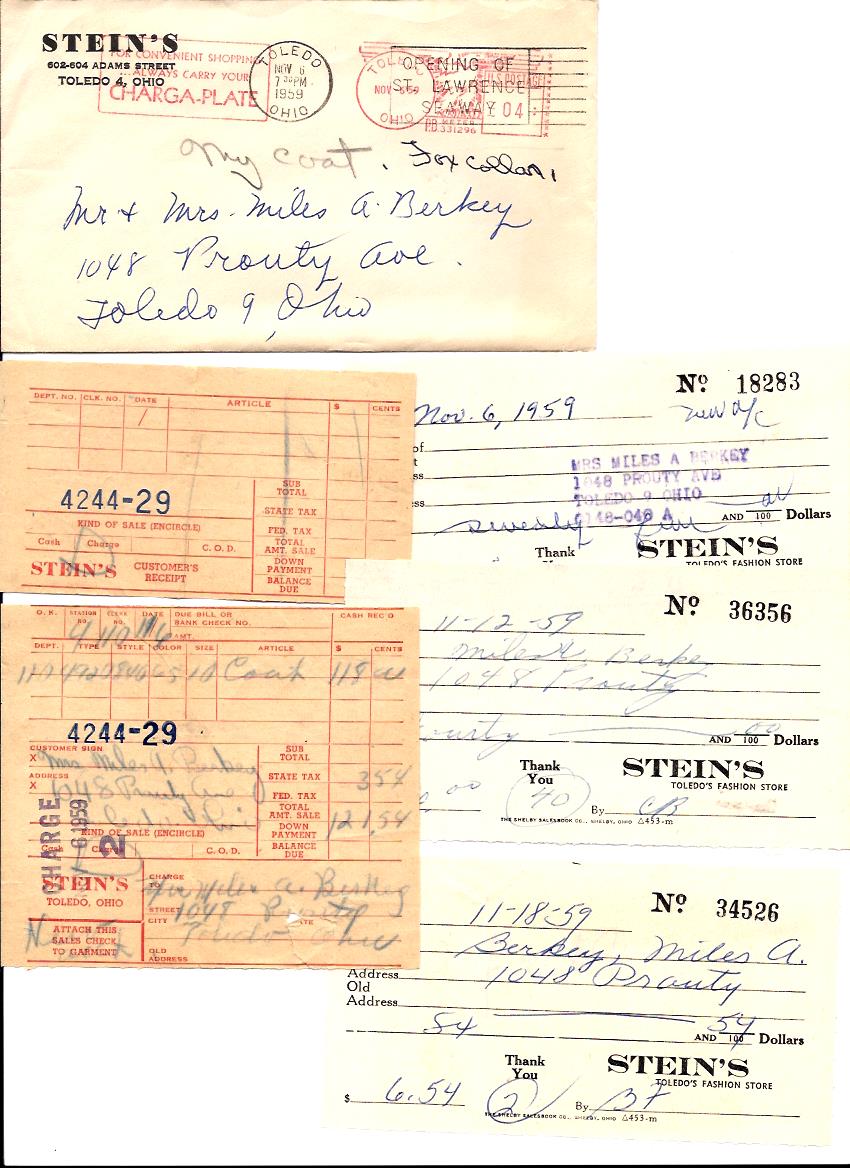 STEIN'S
602-604 ADAMS STREET
TOLEDO 4, OHIO
FOR CONVENIENT SHOPPING
...ALWAYS CARRY YOUR
CHARGA-PLATE
TOLEDO
NOV 6
7 30 PM
1959
OHIO
TOLEDO
NOV -6 59
OHIO
OPENING OF
ST. LAWRENCE
SEAWAY
U.S. POSTAGE
04
P.B. METER
331296
My coat. Fox collar,
Mr + Mrs. Miles A. Berkey
1048 Prouty Ave.
Toledo 9, Ohio
DEPT. NO. CLK. NO. DATE ARTICLE $ CENTS
4244-29
SUB TOTAL
STATE TAX
FED. TAX
TOTAL AMT. SALE
DOWN PAYMENT
BALANCE DUE
KIND OF SALE (ENCIRCLE)
Cash Charge C.O.D.
STEIN'S CUSTOMER'S RECEIPT
No 18283
Nov. 6, 1959 new a/c
of
MRS MILES A BERKEY
1048 PROUTY AVE
TOLEDO 9 OHIO
4148-048 A
Seventy five AND /100 Dollars
Thank
STEIN'S
TOLEDO'S FASHION STORE
O.K. STATION NO. CLERK NO. DATE DUE BILL OR BANK CHECK NO. CASH REC'D
AMT.
4 110 11/6
DEPT. TYPE STYLE COLOR SIZE ARTICLE $ CENTS
10 Coat 118 00
4244-29
CUSTOMER SIGN
X Mrs Miles A. Berkey
ADDRESS
X 1048 Prouty Ave
SUB TOTAL
STATE TAX 3 54
FED. TAX
TOTAL AMT. SALE 121.54
DOWN PAYMENT
BALANCE DUE
KIND OF SALE (ENCIRCLE)
Cash Charge C.O.D.
CHARGE
NOV 6 1959
2
STEIN'S
TOLEDO, OHIO
ATTACH THIS
SALES CHECK
TO GARMENT
CHARGE TO Mrs Miles A. Berkey
STREET 1048 Prouty
CITY Toledo Ohio STATE
OLD ADDRESS
No 36356
11-12-59
Miles A. Berkey
1048 Prouty
AND 00/100 Dollars
Thank You
STEIN'S
TOLEDO'S FASHION STORE
40
By CB
THE SHELBY SALESBOOK CO., SHELBY, OHIO △453-m
No 34526
11-18-59
Berkey, Miles A.
Address 1048 Prouty
Old
Address
AND 54/100 Dollars
Thank You
STEIN'S
TOLEDO'S FASHION STORE
$ 6.54
2
By BF
THE SHELBY SALESBOOK CO., SHELBY, OHIO △453-m